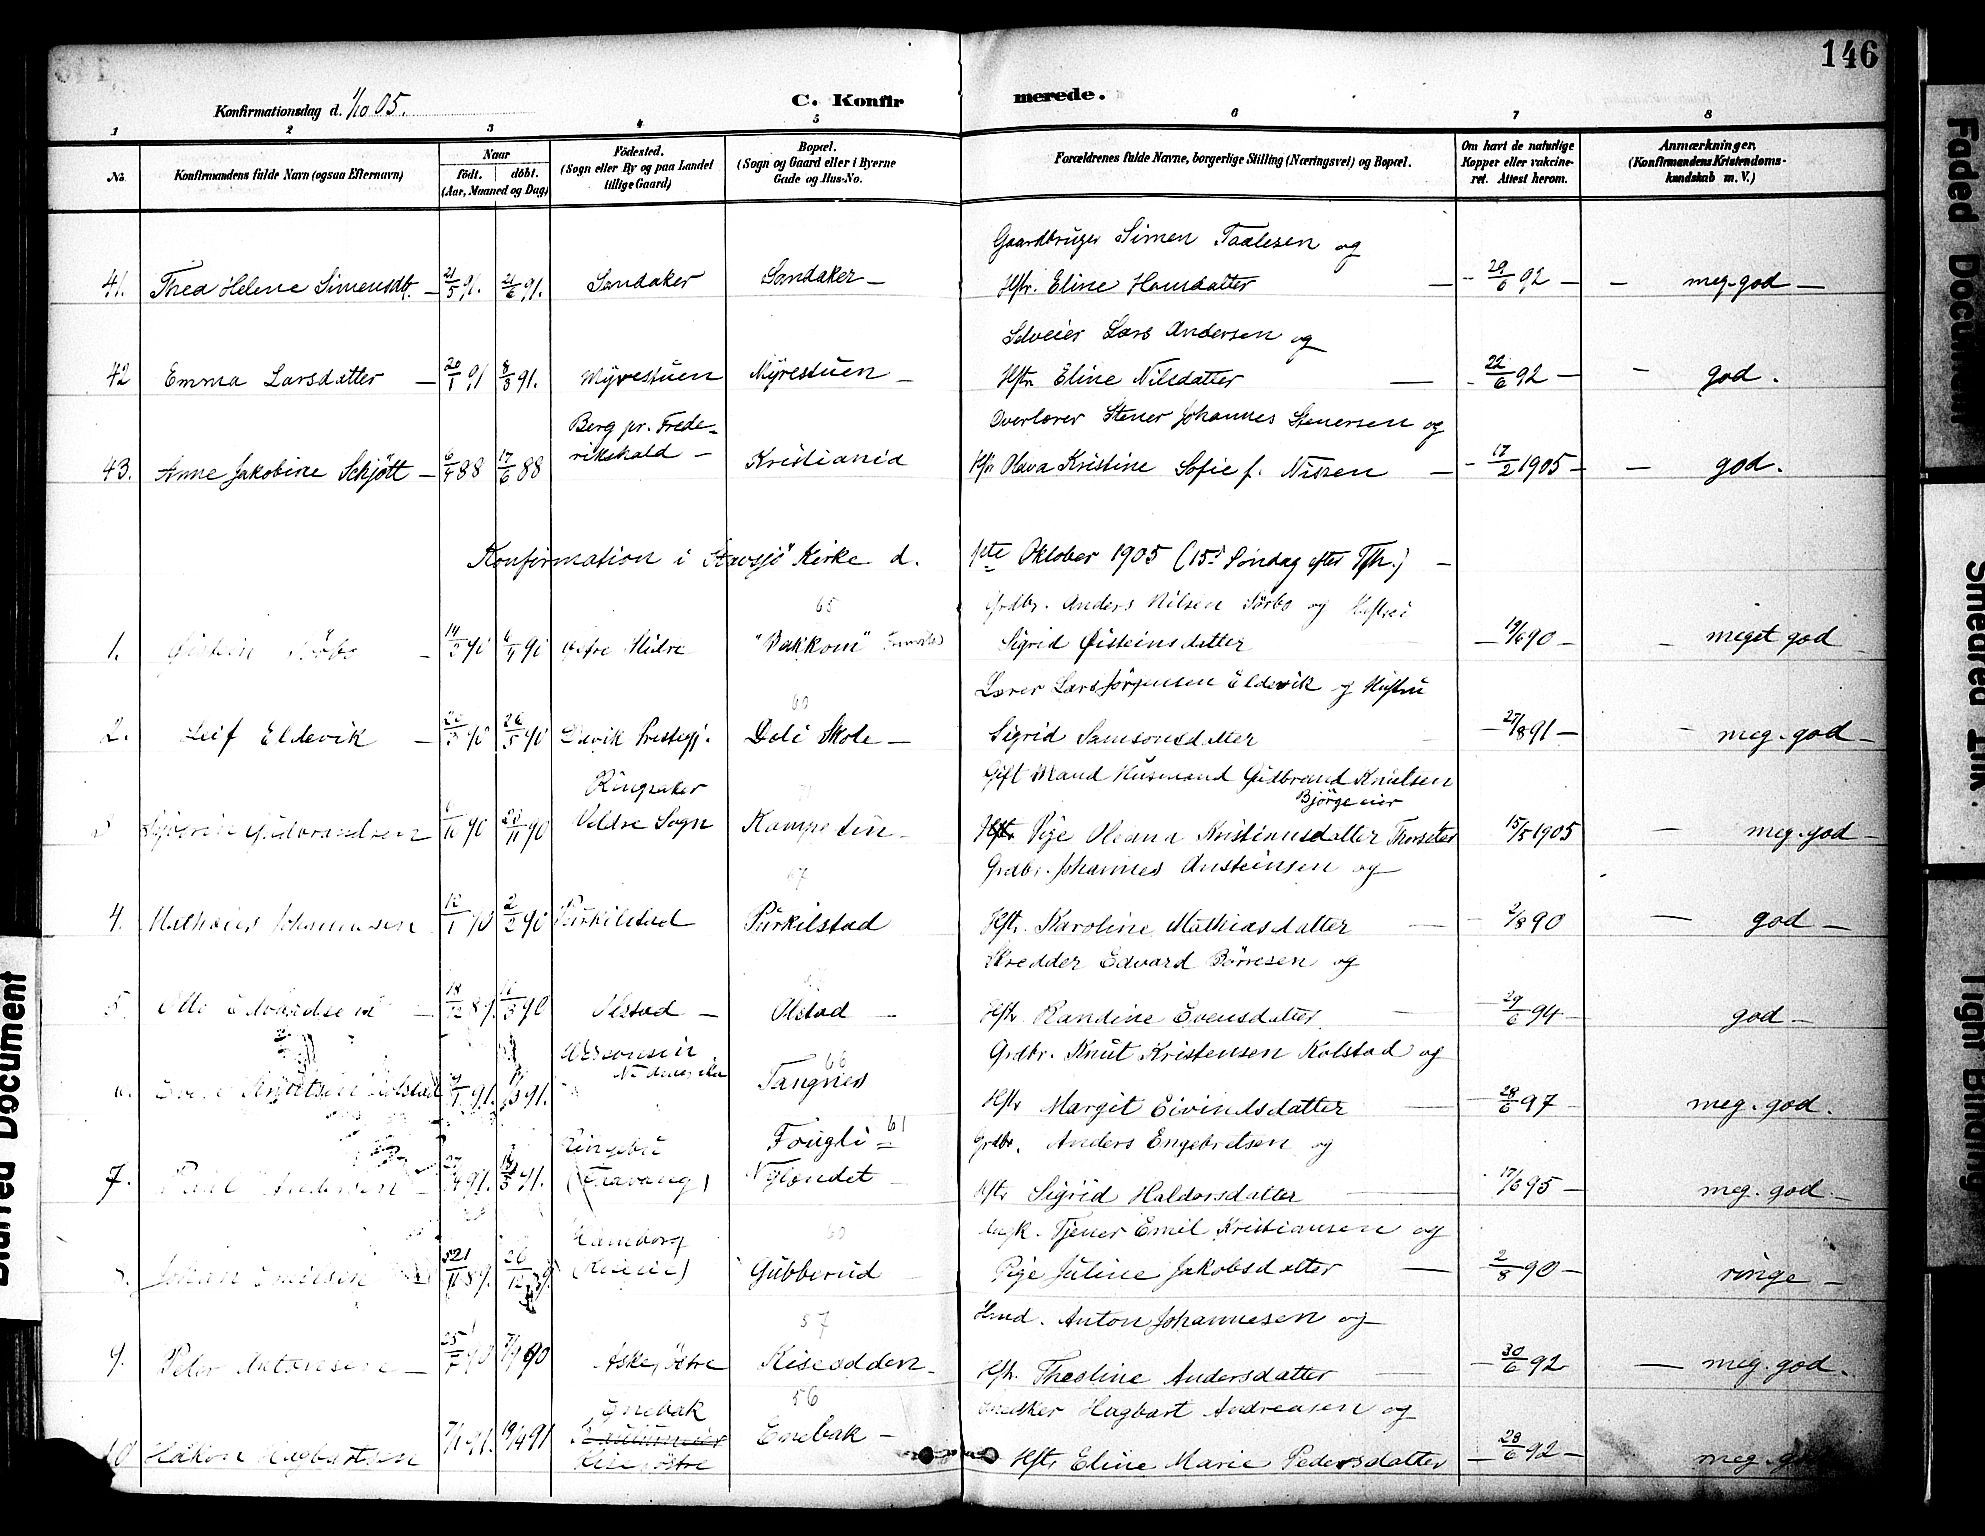 146
Konfirmationsdag d. 1/10 05.
C. Konfirmerede.
1 2 3 4 5 6 7 8
No. Konfirmandens fulde Navn (ogsaa Efternavn) Naar født. døbt. (Aar, Maaned og Dag) Fødested. (Sogn eller By og paa Landet tillige Gaard) Bopæl. (Sogn og Gaard eller i Byerne Gade og Hus-No. Forældrenes fulde Navne, borgerlige Stilling (Næringsvei) og Bopæl. Om havt de naturlige Kopper eller vakcineret. Attest herom. Anmærkninger, (Konfirmandens Kristendomskundskab m. V.)
Gaardbruger Simen Taalesen og
41. Thea Helene Simensdt. 21/5 91. 21/6 91. Sandaker Sandaker Hstr. Eline Hansdatter 29/6 92 meg. god
Selveier Lars Andersen og
42 Emma Larsdatter 20/1 91 8/3 91. Myrestuen Myrestuen Hstr Eline Nilsdatter 22/6 92 god.
Berg pr. Frede- Overlærer Stener Johannes Stenersen og
43. Anne Jakobine Schjött 6/4 88 17/6 88 rikshald Kristiania Hstr Olava Kristine Sofie f. Nissen 17/2 1905 god.
Konfirmation i Stavsjö Kirke d. 1ste Oktober 1905 (15d Søndag efter Tfh.)
65 Grdbr. Anders Nilsen Sørbo og Hustru
1. Øistein Sørbo 90 90 Slidre "Bakkom" Sigrid Øisteinsdatter 19/6 90 meget god
60 Lærer Lars Jørgensen Eldevik og Hustru
2. Leif Eldevik 90 26/5 90 Davik Prestegj. Deli Skole Sigrid Samsonsdatter 27/8 91 meg. god
Ringsaker Gift Mand Husmand Gudbrand Knutsen
Bjørgeeier
3 Gudbrandsen 90 23/11 90 Veldre Sogn Kampestuen Pige Oleana Kristiansdatter Thorseter 15/5 1905 meg. god
67 Grdbr. Johannes Austeinsen og
4. Mathias Johannesen 12/1 90 2/2 90 Purkilstad Purkilstad Hstr. Karoline Mathiasdatter 2/8 90 god
Skredder Edvard Børresen og
5. Otto Edvardsen 18/12 89. 90 Alstad Alstad Hstr Randine Evensdatter 29/6 94 god
68 Grdbr. Knut Kristensen Kolstad og
6. Knutsen Kolstad 91. 91. Tangnes Hstr Margit Eivindsdatter 28/6 97 meg. god.
Ringebu Fougli 61 Grdbr. Anders Engebretsen og
7. Paul Andersen 91. 91. (Fåvang) Nylendet Hstr Sigrid Haldorsdatter 17/6 95 meg. god
60 Ungk. Tjener Emil Kristiansen og
Johan Emilsen 89. 26/12 Gubberud Pige Juline Jakobsdatter 2/8 90 ringe
57 Hmd. Anton Johannesen og
9. Peter Antonsen 25/7 90 7/9 90 Aske, östre Riseodden Hstr. Theoline Andersdatter 30/6 92 meg. god.
Enebak 56 Hagbart Andreasen og
10 Håkon Hagbartsen 7/1 91. 19/4 91 Enebak Hstr Eline Marie Pedersdatter 28/6 92 meg. god
östre
Faded Document
Smeared Ink
Tight Binding
Blurred Document